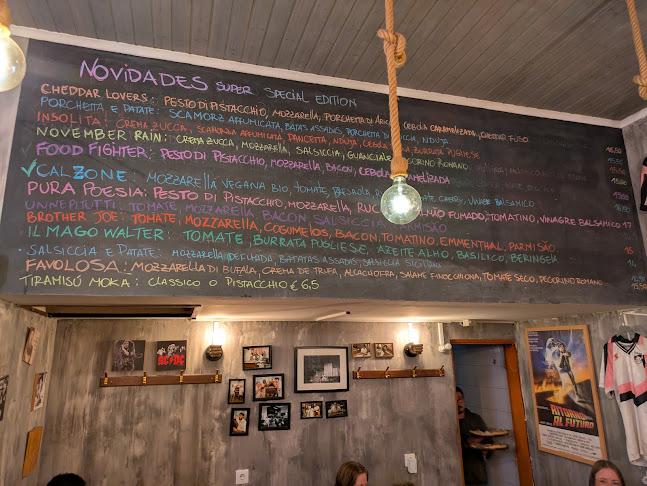 NOVIDADES SUPER SPECIAL EDITION
CHEDDAR LOVERS: PESTO DI PISTACCHIO, MOZZARELLA, PORCHETTA DI CEBOLA CARAMELIZADA, CHEDDAR FUSO
PORCHETTA E PATATE: SCAMORZA AFFUMICATA, BATATAS ASSADAS, PORCHETTA DI NDUJA 15,50
INSOLITA: CREMA ZUCCA, SCAMORZA AFFUMICATA, PANCETTA, NDUJA, CEBOLA BURRATA PUGLIESE
NOVEMBER RAIN: CREMA ZUCCA, MOZZARELLA, SALSICCIA, GUANCIALE, PECORINO ROMANO
FOOD FIGHTER: PESTO DI PISTACCHIO, MOZZARELLA, BACON, CEBOLA CARAMELIZADA
✓ CALZONE: MOZZARELLA VEGANA BIO, TOMATE, VINAGRE BALSAMICO
PURA POESIA: PESTO DI PISTACCHIO, MOZZARELLA, SALMÃO FUMADO, TOMATINO, VINAGRE BALSAMICO 17
UNNEPITUTTI: TOMATE, MOZZARELLA, BACON, SALSICCIA, PARMISÃO
BROTHER JOE: TOMATE, MOZZARELLA, COGUMELOS, BACON, TOMATINO, EMMENTHAL, PARMISÃO 15
IL MAGO WALTER: TOMATE, BURRATA PUGLIESE, AZEITE ALHO, BASILICO, BERINGELA
SALSICCIA E PATATE: MOZZARELLA AFFUMADA, BATATAS ASSADAS, SALSICCIA SICILIANA
FAVOLOSA: MOZZARELLA DI BUFALA, CREMA DE TRUFA, ALCACHOFRA, SALAME FINOCCHIONA, TOMATE SECO, PECORINO ROMANO
TIRAMISÚ MOKA: CLASSICO O PISTACCHIO € 6,5
AC/DC
RITORNO
AL FUTURO